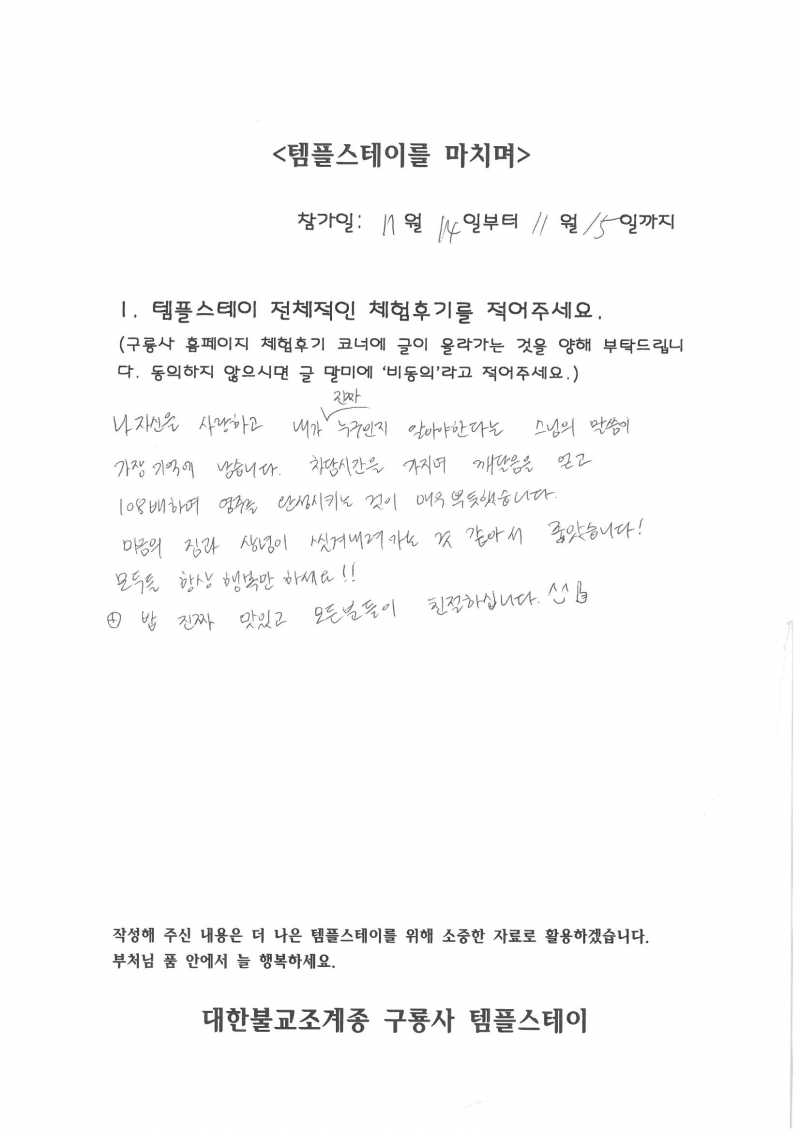 <템플스테이를 마치며>
참가일: 11월 14일부터 11월 15일까지
1. 템플스테이 전체적인 체험후기를 적어주세요.
(구룡사 홈페이지 체험후기 코너에 글이 올라가는 것을 양해 부탁드립니
다. 동의하지 않으시면 글 말미에 '비동의'라고 적어주세요.)
나 자신을 사랑하고 내가 진짜 누구인지 알아야한다는 스님의 말씀이
가장 기억에 남습니다. 차담시간을 가지며 깨달음을 얻고
108배하며 염주를 완성시키는 것이 매우 뿌듯했습니다.
마음의 짐과 상념이 씻겨내려가는 것 같아서 좋았습니다!
모두들 항상 행복만 하세요!!
⊕ 밥 진짜 맛있고 모든분들이 친절하십니다. ^^
작성해 주신 내용은 더 나은 템플스테이를 위해 소중한 자료로 활용하겠습니다.
부처님 품 안에서 늘 행복하세요.
대한불교조계종 구룡사 템플스테이